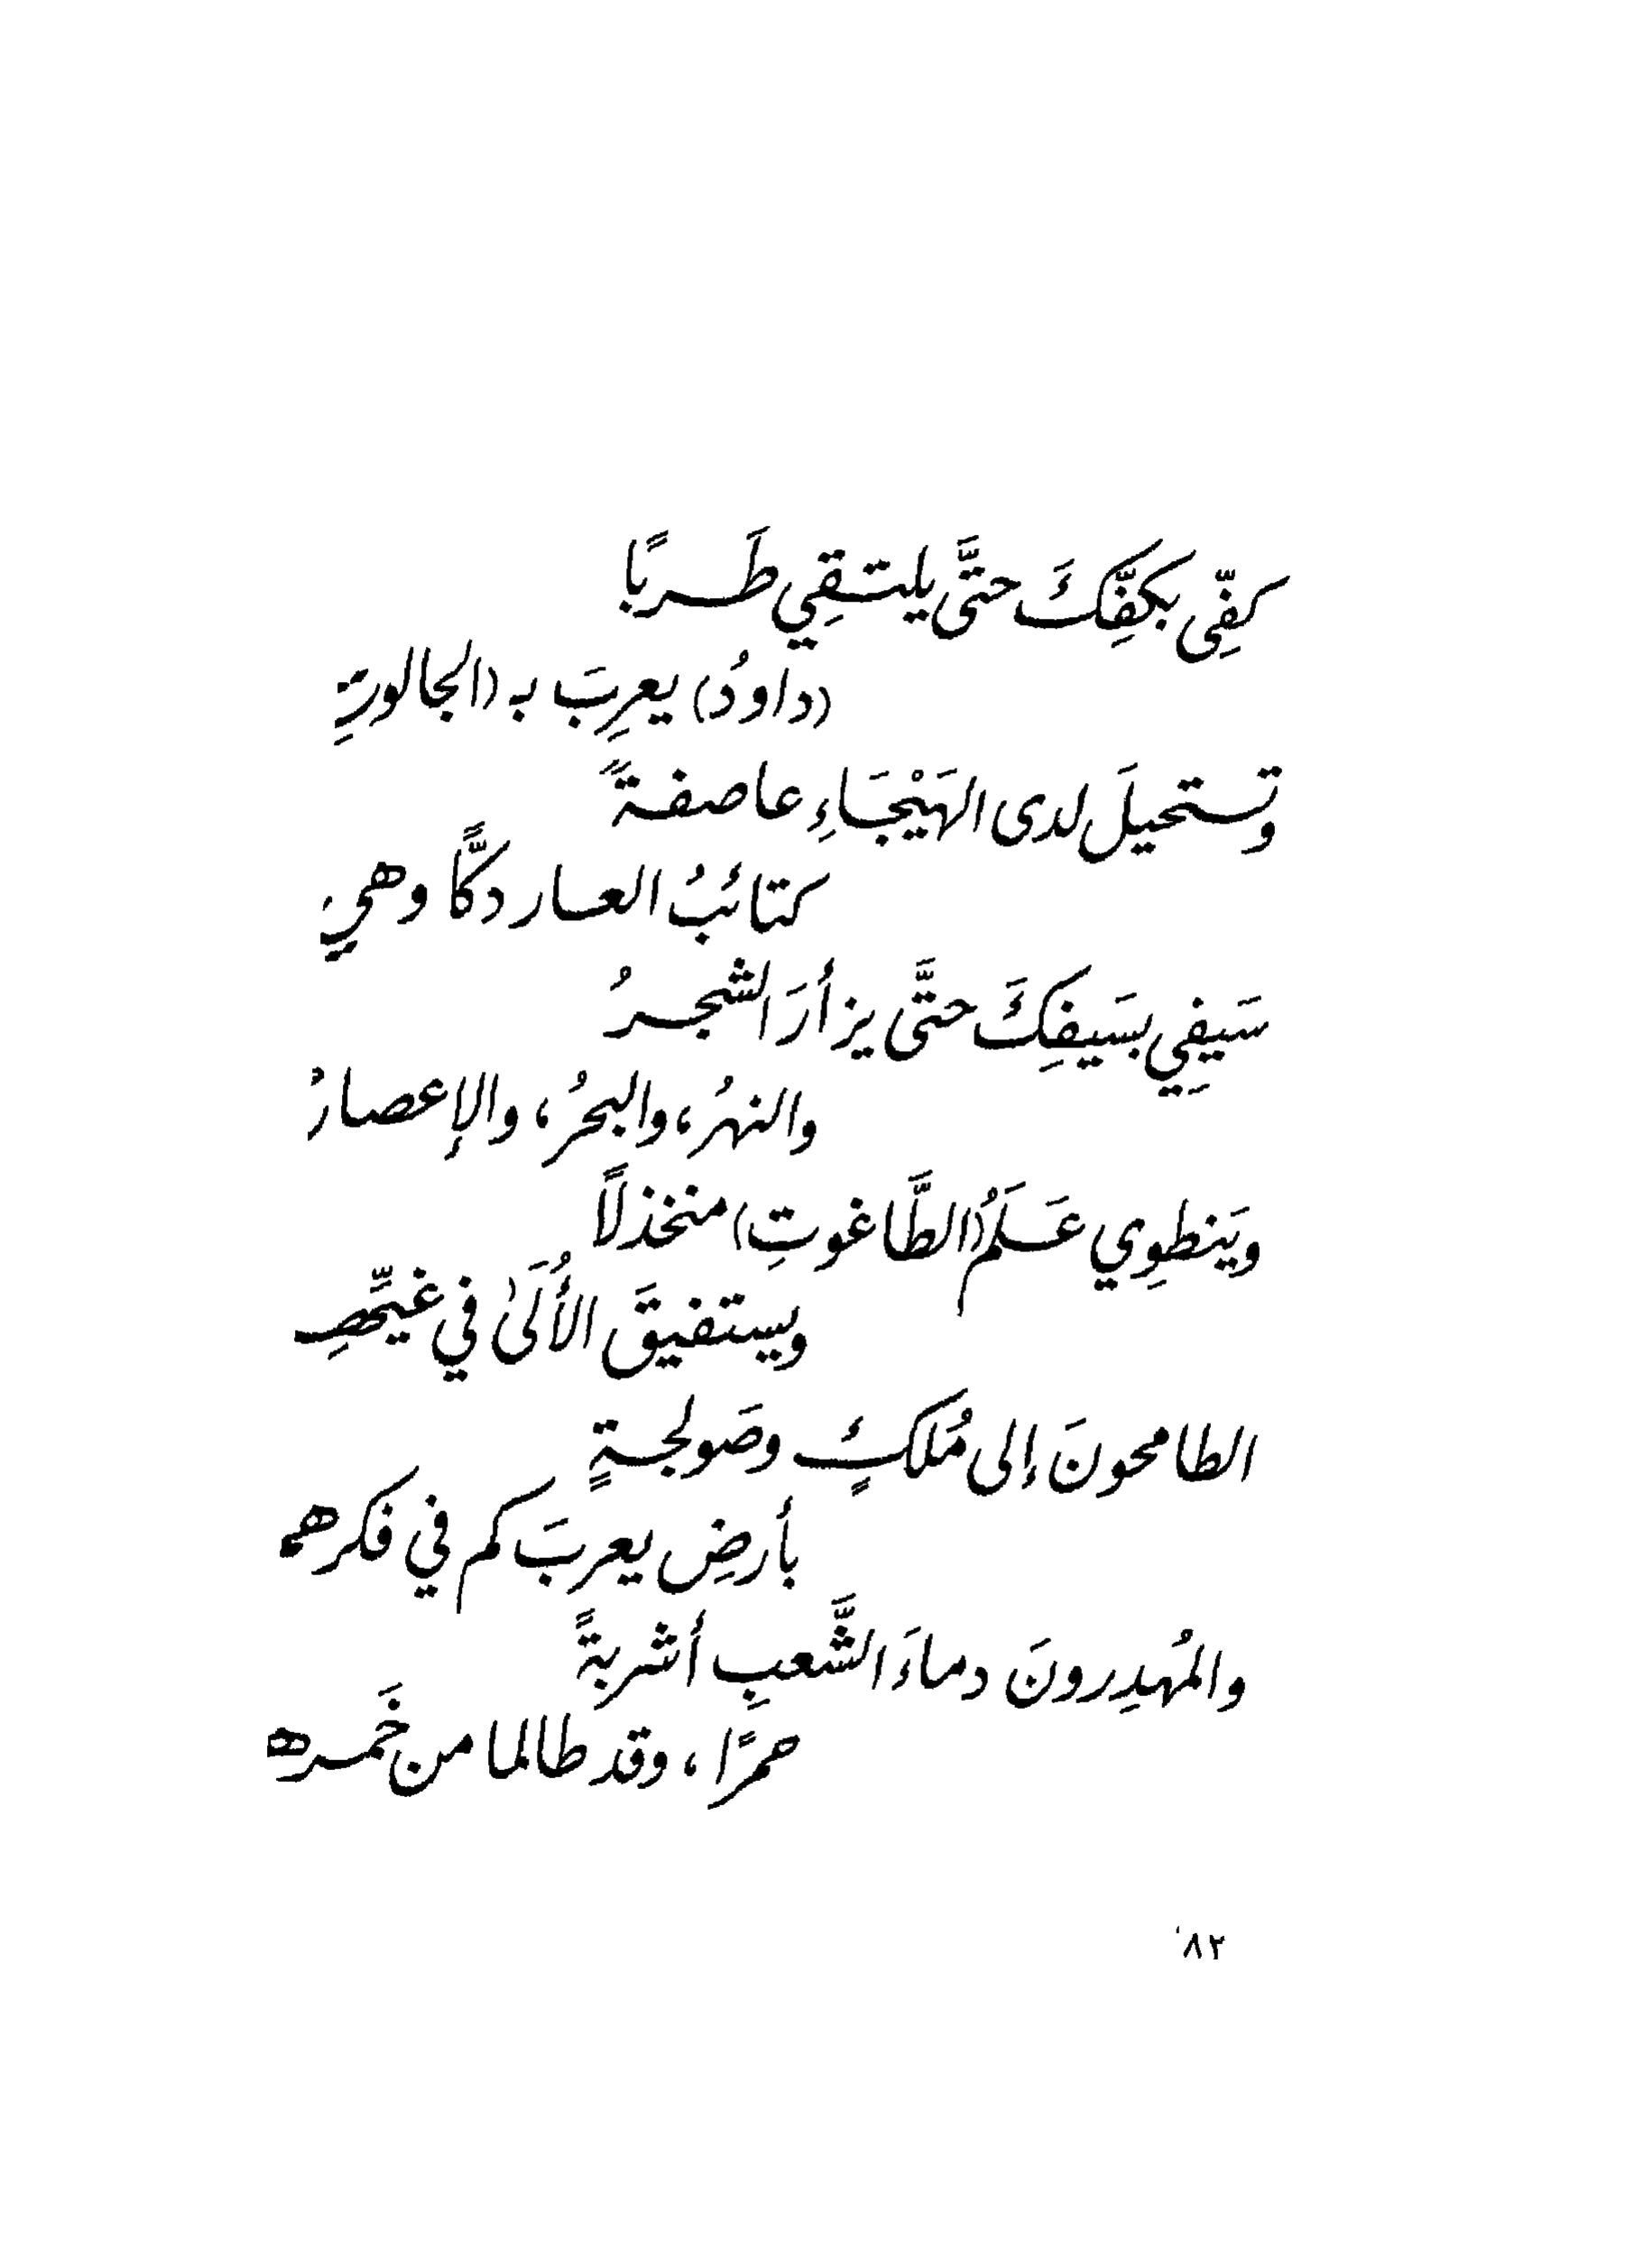 كَفِّي بكفِّكَ حتَّى يلتقِي طَربًا
(داودُ) يعرِبَ بـ (الجالوتِ
وتستحيلَ لدى الهَيْجَاءِ عاصفةً
كتائبُ العار دكًّا وهي
سَيفِي بسَيفِكَ حتَّى يزأرَ الشجرُ
والنهرُ، والبحرُ، والإعصارُ
ويَنطوِي عَلَمُ (الطَّاغوتِ) منخذلاً
ويستفيقَ الأُلَىٰ في غيِّهم
الطامحونَ إلى مُلكٍ وصَولجةٍ
بأرضِ يعربَ كم في فكرهم
والمُهدِرونَ دماءَ الشَّعبِ أشربةً
حمرًا، وقد طالما من خَمره
٨٢